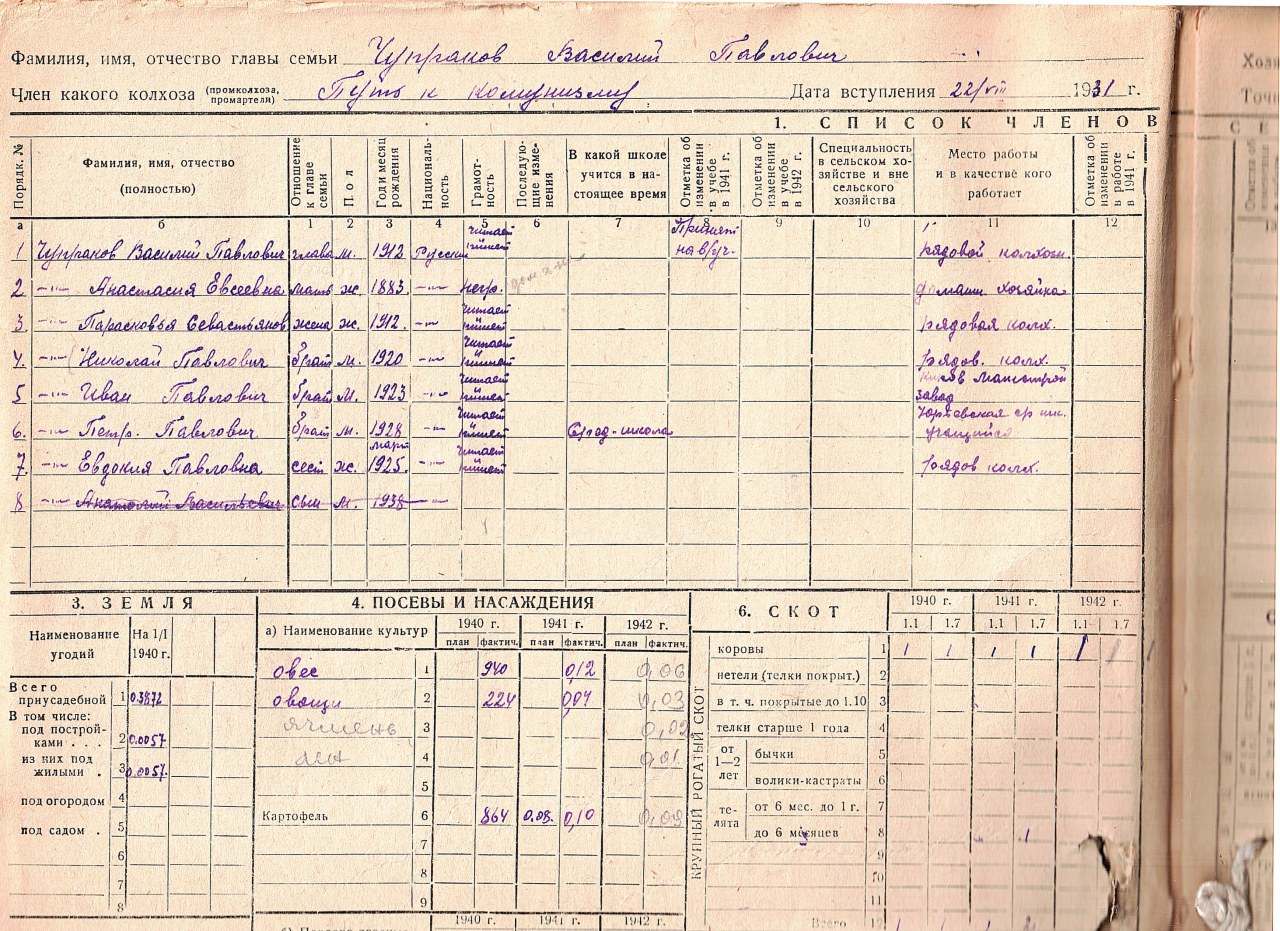 Фамилия, имя, отчество главы семьи Чупраков Василий Павлович
Член какого колхоза (промколхоза, промартели) Путь к комунизму Дата вступления 22/VIII 1931 г.
1. СПИСОК ЧЛЕНОВ
Порядк. № Фамилия, имя, отчество (полностью) Отношение к главе семьи Пол Год и месяц рождения Националь-ность Грамот-ность Последую-щие изме-нения В какой школе учится в на-стоящее время Отметка об изменении в учебе в 1941 г. Отметка об изменении в учебе в 1942 г. Специальность в сельском хо-зяйстве и вне сельского хозяйства Место работы и в качестве кого работает Отметка об изменении в работе в 1941 г.
а б 1 2 3 4 5 6 7 8 9 10 11 12
1 Чупраков Василий Павлович глава м. 1912 Русский читает пишет Принят на в/уч. рядовой колхозн.
2. -"- Анастасия Евсеевна мать ж. 1883 -"- негр. домаш. хозяйка
3. -"- Парасковья Севастьянов жена ж. 1912. -"- читает пишет рядовая колх.
4. -"- Николай Павлович брат м. 1920 -"- читает пишет рядов. колх.
5 -"- Иван Павлович брат м. 1923 -"- читает пишет завод
6. -"- Петр. Павлович брат м. 1928 -"- читает пишет Сред-школа учащийся
7. -"- Евдокия Павловна сест ж. март 1925. -"- читает пишет рядов колх.
8 -"- Анатолий Васильевич сын м. 1938 -"-
3. ЗЕМЛЯ
Наименование угодий На 1/I 1940 г.
Всего приусадебной 1 0.3872
В том числе:
под построй-ками . . . 2 0.0057
из них под жилыми . 3 0.0057.
под огородом 4
под садом . 5
6
7
8
4. ПОСЕВЫ И НАСАЖДЕНИЯ
а) Наименование культур 1940 г. 1941 г. 1942 г.
план фактич. план фактич. план фактич.
овес 1 940 0,12 0,06
овощи 2 224 0,04 0,03
ячмень 3 0,02
лен 4 0,01
5
Картофель 6 864 0.09. 0,10 0,09
7
8
9
1940 г. 1941 г. 1942 г.
6. СКОТ
1940 г. 1941 г. 1942 г.
1.1 1.7 1.1 1.7 1.1 1.7
КРУПНЫЙ РОГАТЫЙ СКОТ
коровы 1 1 1 1 1 1 1 1
нетели (телки покрыт.) 2
в т. ч. покрытые до 1.10 3
телки старше 1 года 4
от 1—2 лет бычки 5
волики-кастраты 6
те-лята от 6 мес. до 1 г. 7
до 6 месяцев 8 1 1
9
10
11
Всего 12 1 1 1 2
Хозя
Точн